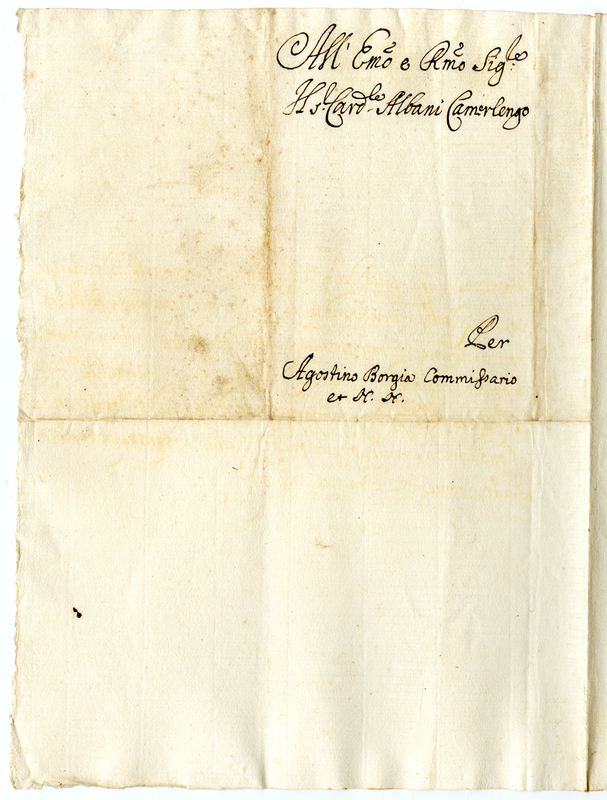 All' Emo e Rmo Sigle:
Il S.r Card.le Albani Camerlengo
Per
Agostino Borgia Commissario
et N. N.